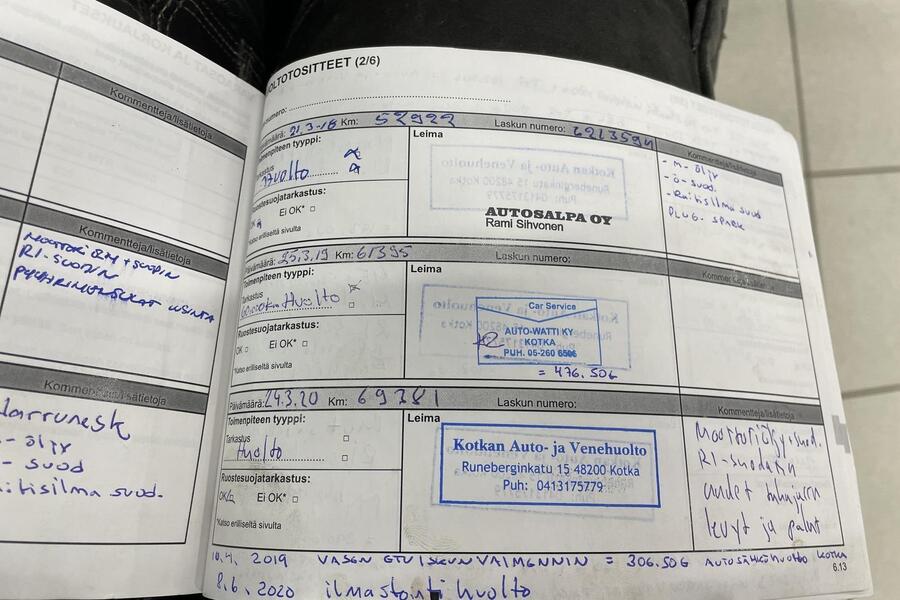 Kommentteja/lisätietoja
Kommentteja/lisätietoja
MOOTTORIÖLJY + SUODIN
RI-SUODIN
Kommentteja/lisätietoja
- öljy
- suod
suod.
OLTOTOSITTEET (2/6)
numero:
Päivämäärä: 21.3-18 Km: 52922 Laskun numero: 6213594
Toimenpiteen tyyppi:
Tarkastus
Huolto
Ruostesuojatarkastus:
OK Ei OK*
*Katso erilliseltä sivulta
Leima
Kotkan Auto- ja Venehuolto
Runeberginkatu 15 48200 Kotka
Puh: 0413175779
AUTOSALPA OY
Rami Sihvonen
Kommentteja/lisätietoja
- m-öljy
- ö-suod.
- Raitisilma suod
PLUG-SPARK
Päivämäärä: 25.3.19 Km: 61395 Laskun numero:
Toimenpiteen tyyppi:
Tarkastus
60.000km Huolto
Ruostesuojatarkastus:
OK Ei OK*
*Katso erilliseltä sivulta
Leima
Car Service
AUTO-WATTI KY
KOTKA
PUH. 05-260 6506
= 476.50€
Kommentteja/lisätietoja
Päivämäärä: 24.3.20 Km: 69781 Laskun numero:
Toimenpiteen tyyppi:
Tarkastus
Huolto
Ruostesuojatarkastus:
OK Ei OK*
*Katso erilliseltä sivulta
Leima
Kotkan Auto- ja Venehuolto
Runeberginkatu 15 48200 Kotka
Puh: 0413175779
Kommentteja/lisätietoja
Moottoriöljy + suod.
RI-suodatin
uudet takajarru
levyt ja palat
10.4. 2019 VASEN ETUISKUNVAIMENNIN = 306.50€ AUTOSÄHKÖHUOLTO KOTKA
6.13
8.6. 2020 ilmastointihuolto